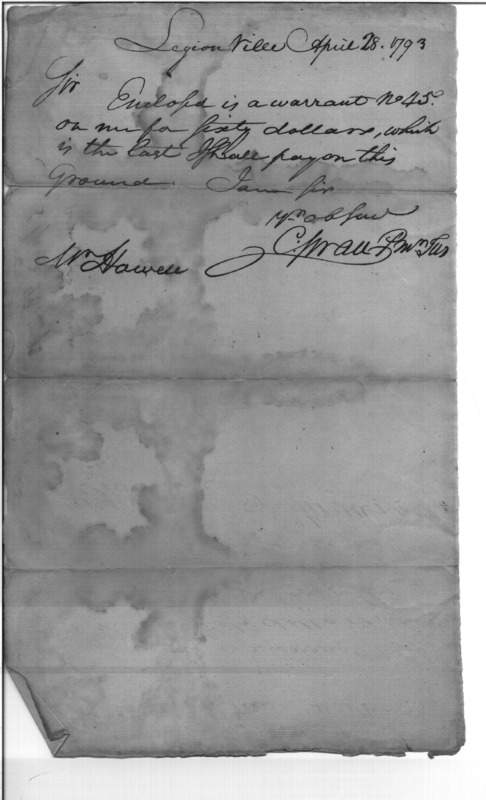 Legion Ville April 28. 1793
Sir
Enclosed is a warrant No 45.
on me for Sixty dollars, which
is the last I shall pay on this
Ground. I am Sir
Yr. ob Serv
C Swan P. Mr.
Mr Howell